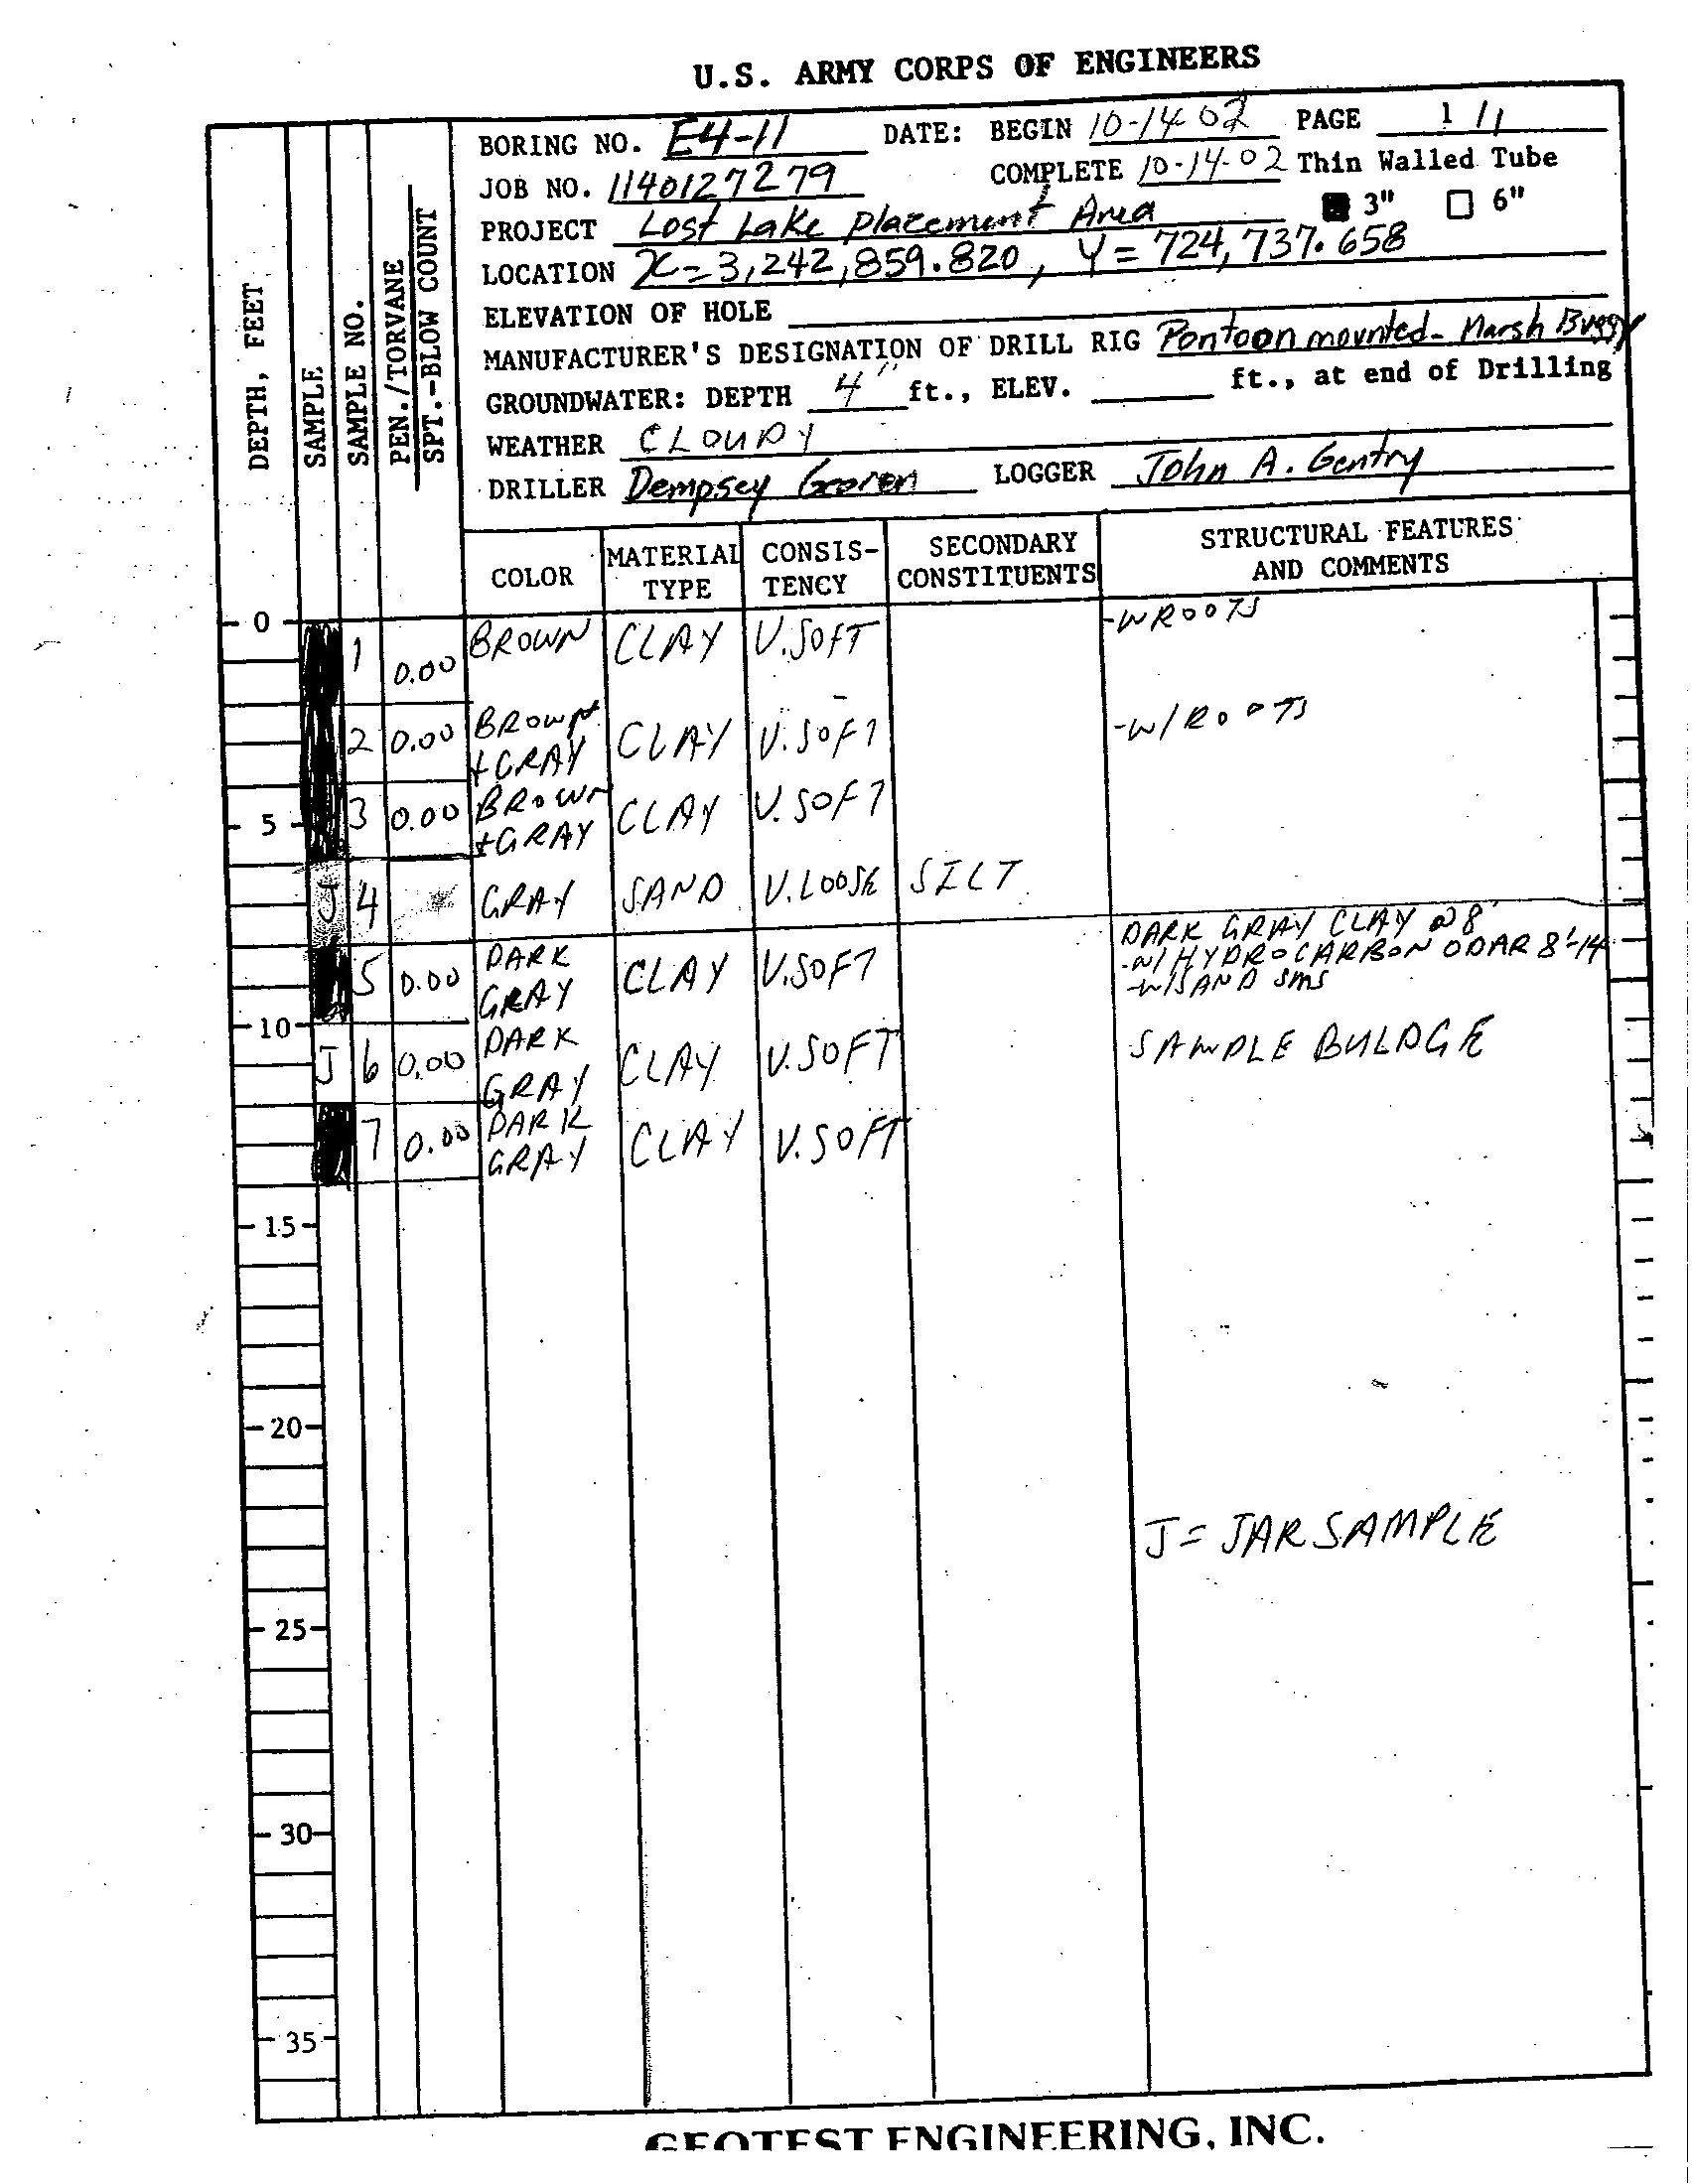 U.S. ARMY CORPS OF ENGINEERS
BORING NO. E4-11 DATE: BEGIN 10-14-02 PAGE 1 / 1
JOB NO. 1140127279 COMPLETE 10-14-02 Thin Walled Tube
PROJECT Lost Lake Placement Area 3" 6"
LOCATION X=3,242,859.820, Y=724,737.658
ELEVATION OF HOLE
MANUFACTURER'S DESIGNATION OF DRILL RIG Pontoon mounted- Marsh Buggy
GROUNDWATER: DEPTH 4" ft., ELEV. ft., at end of Drilling
WEATHER CLOUDY
DRILLER Dempsey LOGGER John A. Gentry
DEPTH, FEET
SAMPLE
SAMPLE NO.
PEN./TORVANE
SPT.-BLOW COUNT
COLOR MATERIAL TYPE CONSIS-TENCY SECONDARY CONSTITUENTS STRUCTURAL FEATURES AND COMMENTS
0 1 0.00 BROWN CLAY V.SOFT -WROOTS
2 0.00 BROWN +GRAY CLAY V.SOFT -W/ROOTS
5 3 0.00 BROWN +GRAY CLAY V.SOFT
J 4 GRAY SAND V.LOOSE SILT
DARK GRAY CLAY @ 8'
5 0.00 DARK GRAY CLAY V.SOFT -W/HYDROCARBON ODAR 8'-14
-W/SAND SMS
10 J 6 0.00 DARK GRAY CLAY V.SOFT SAMPLE BULDGE
7 0.00 DARK GRAY CLAY V.SOFT
15
20
J = JAR SAMPLE
25
30
35
GEOTEST ENGINEERING, INC.